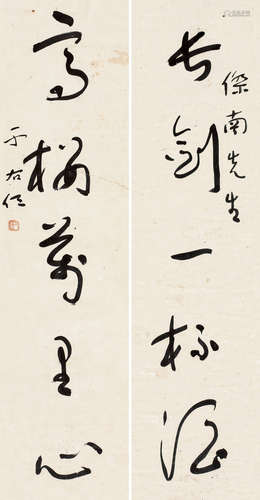 長劍一杯酒
傑南先生
高樓萬里心
于右任